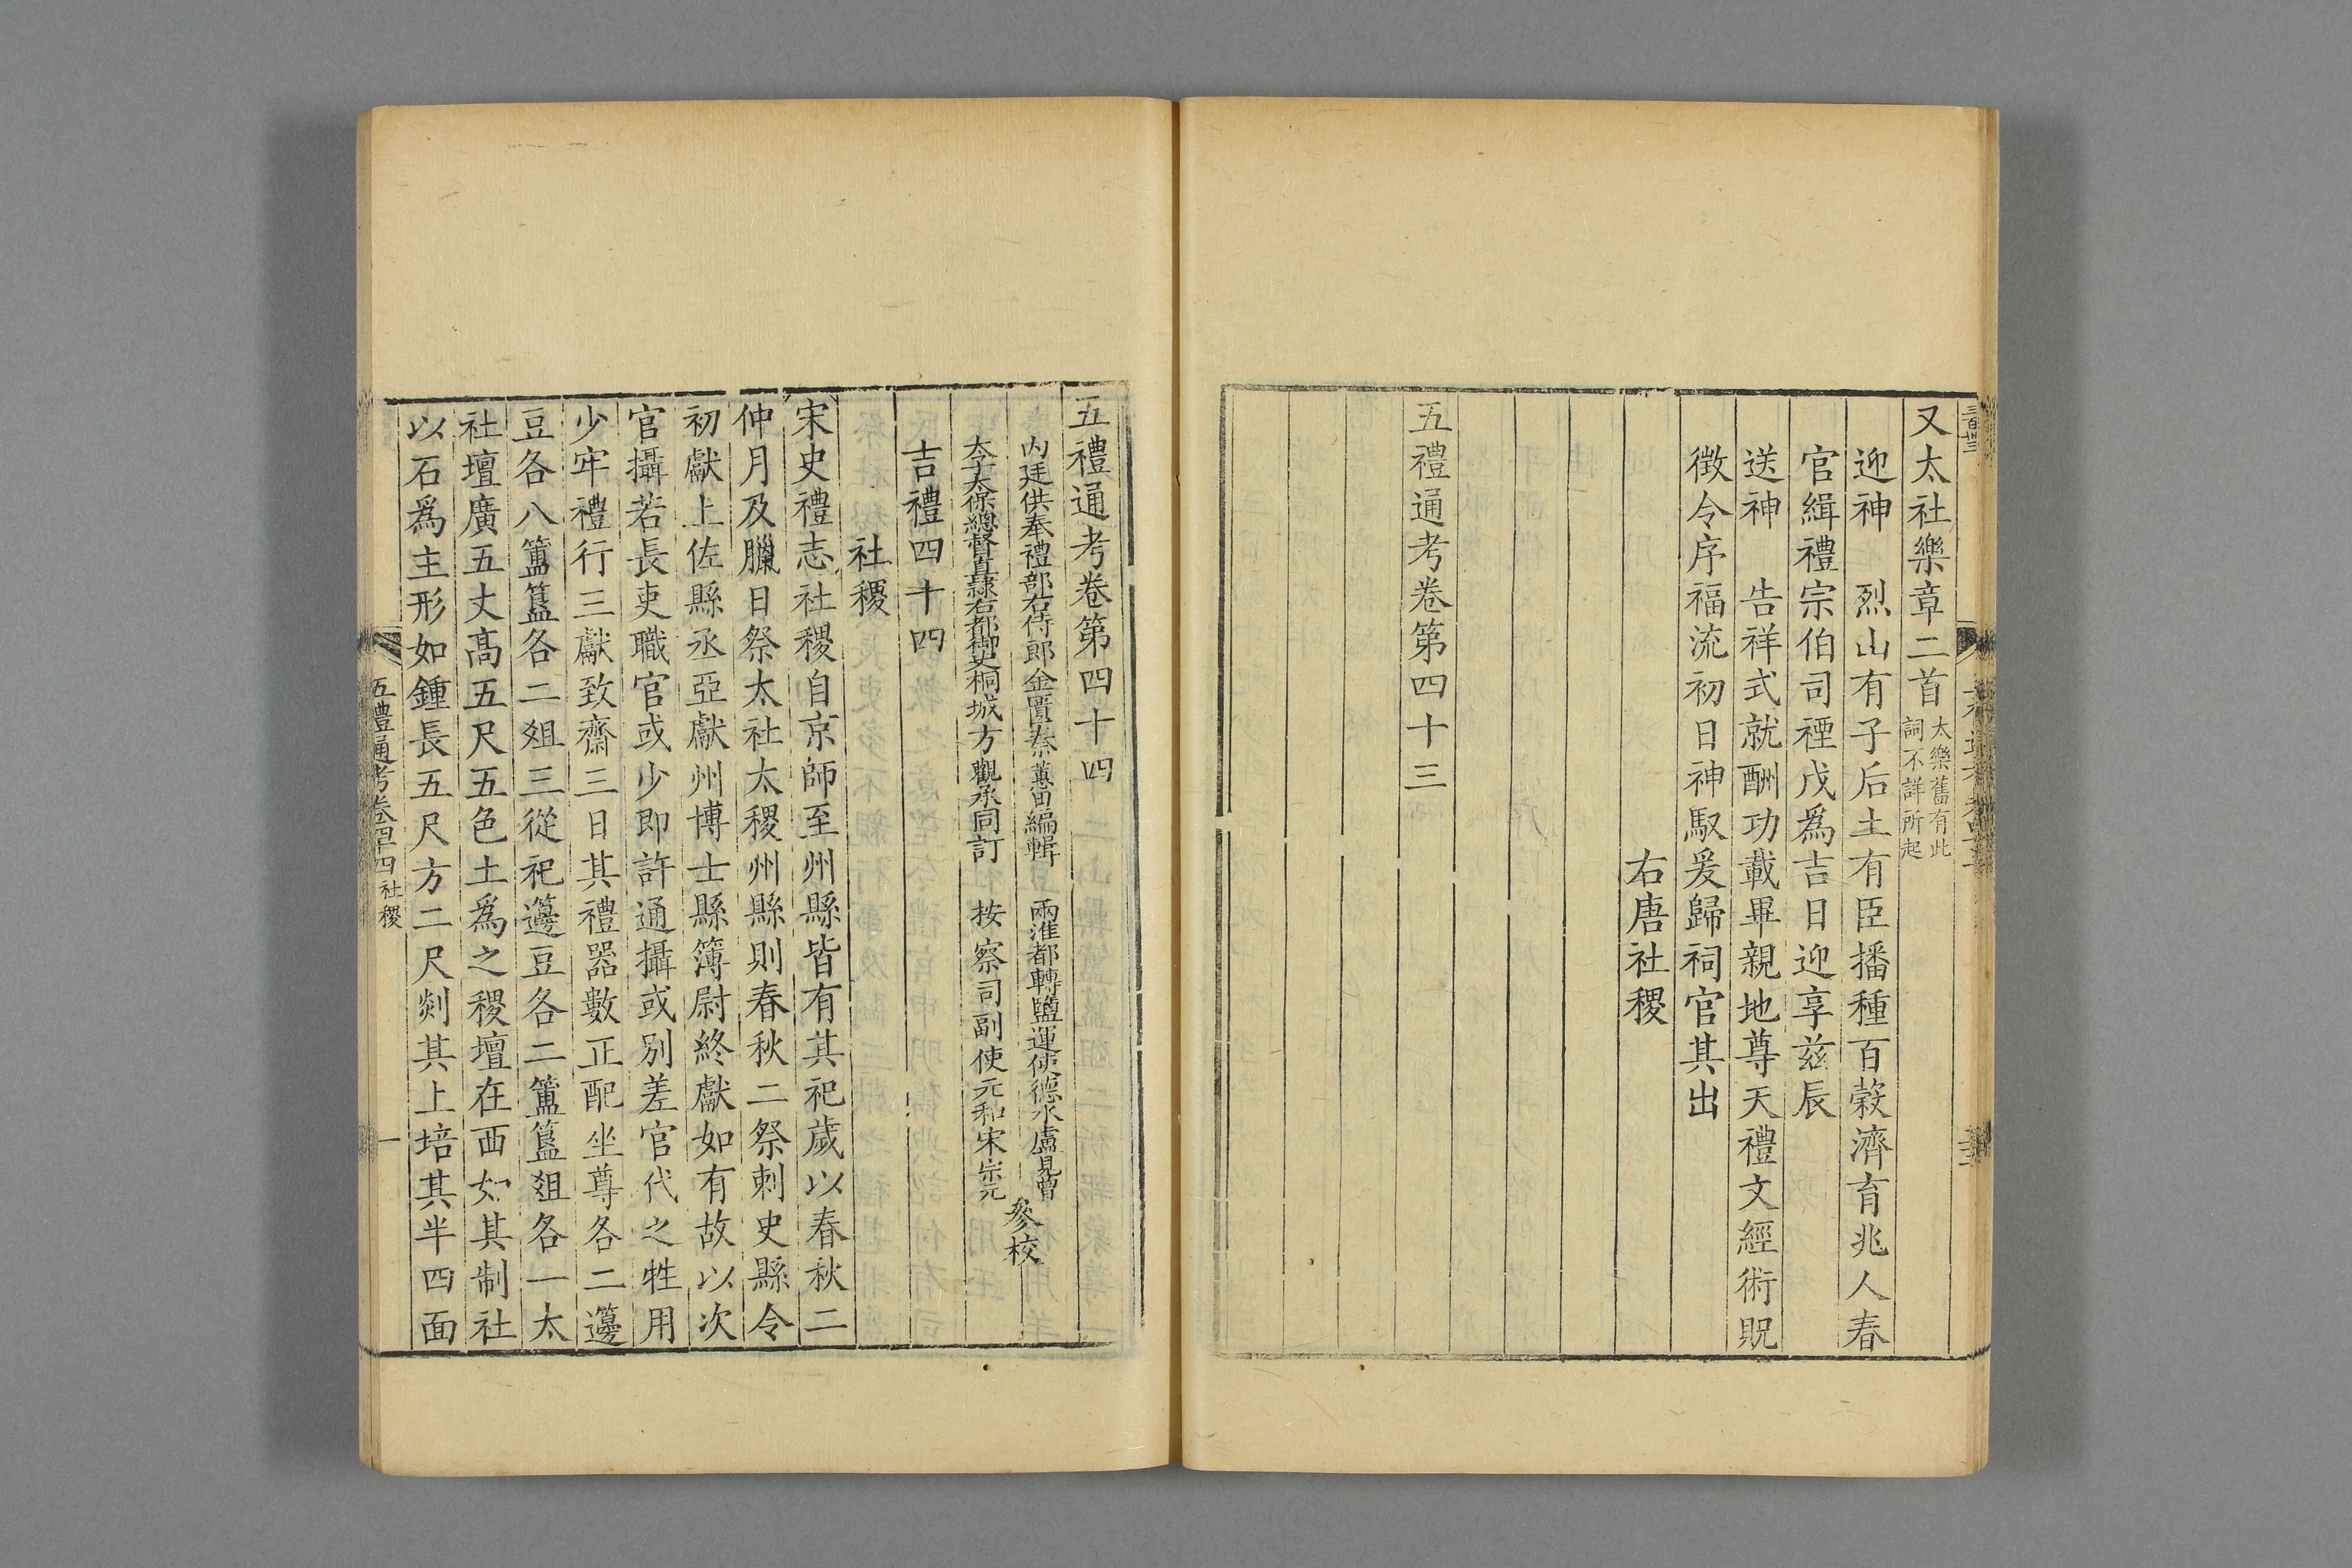 又太社樂章二首太樂舊有此詞不詳所起
迎神　烈山有子后土有臣播種百榖濟育兆人春
官緝禮宗伯司禋戊爲吉日迎享兹辰
送神　告祥式就酬功載畢親地尊天禮文經術貺
徴令序福流初日神馭爰歸祠官其出
右唐社稷
五禮通考卷第四十三
五禮通考卷第四十四
内廷供奉禮部右侍郎金匱秦蕙田編輯　兩淮都轉鹽運使德水盧見曾
太子太保總督直隸右都御史桐城方觀承同訂　按察司副使元和宋宗元
參校
吉禮四十四
社稷
宋史禮志社稷自京師至州縣皆有其祀歲以春秋二
仲月及臘日祭太社太稷州縣則春秋二祭刺史縣令
初獻上佐縣丞亞獻州博士縣簿尉終獻如有故以次
官攝若長吏職官或少即許通攝或别差官代之牲用
少牢禮行三獻致齋三日其禮器數正配坐尊各二籩
豆各八簠簋各二爼三從祀籩豆各二簠簋爼各一太
社壇廣五丈髙五尺五色土爲之稷壇在西如其制社
以石爲主形如鍾長五尺方二尺剡其上培其半四面
五禮通考卷四十四　社稷　一